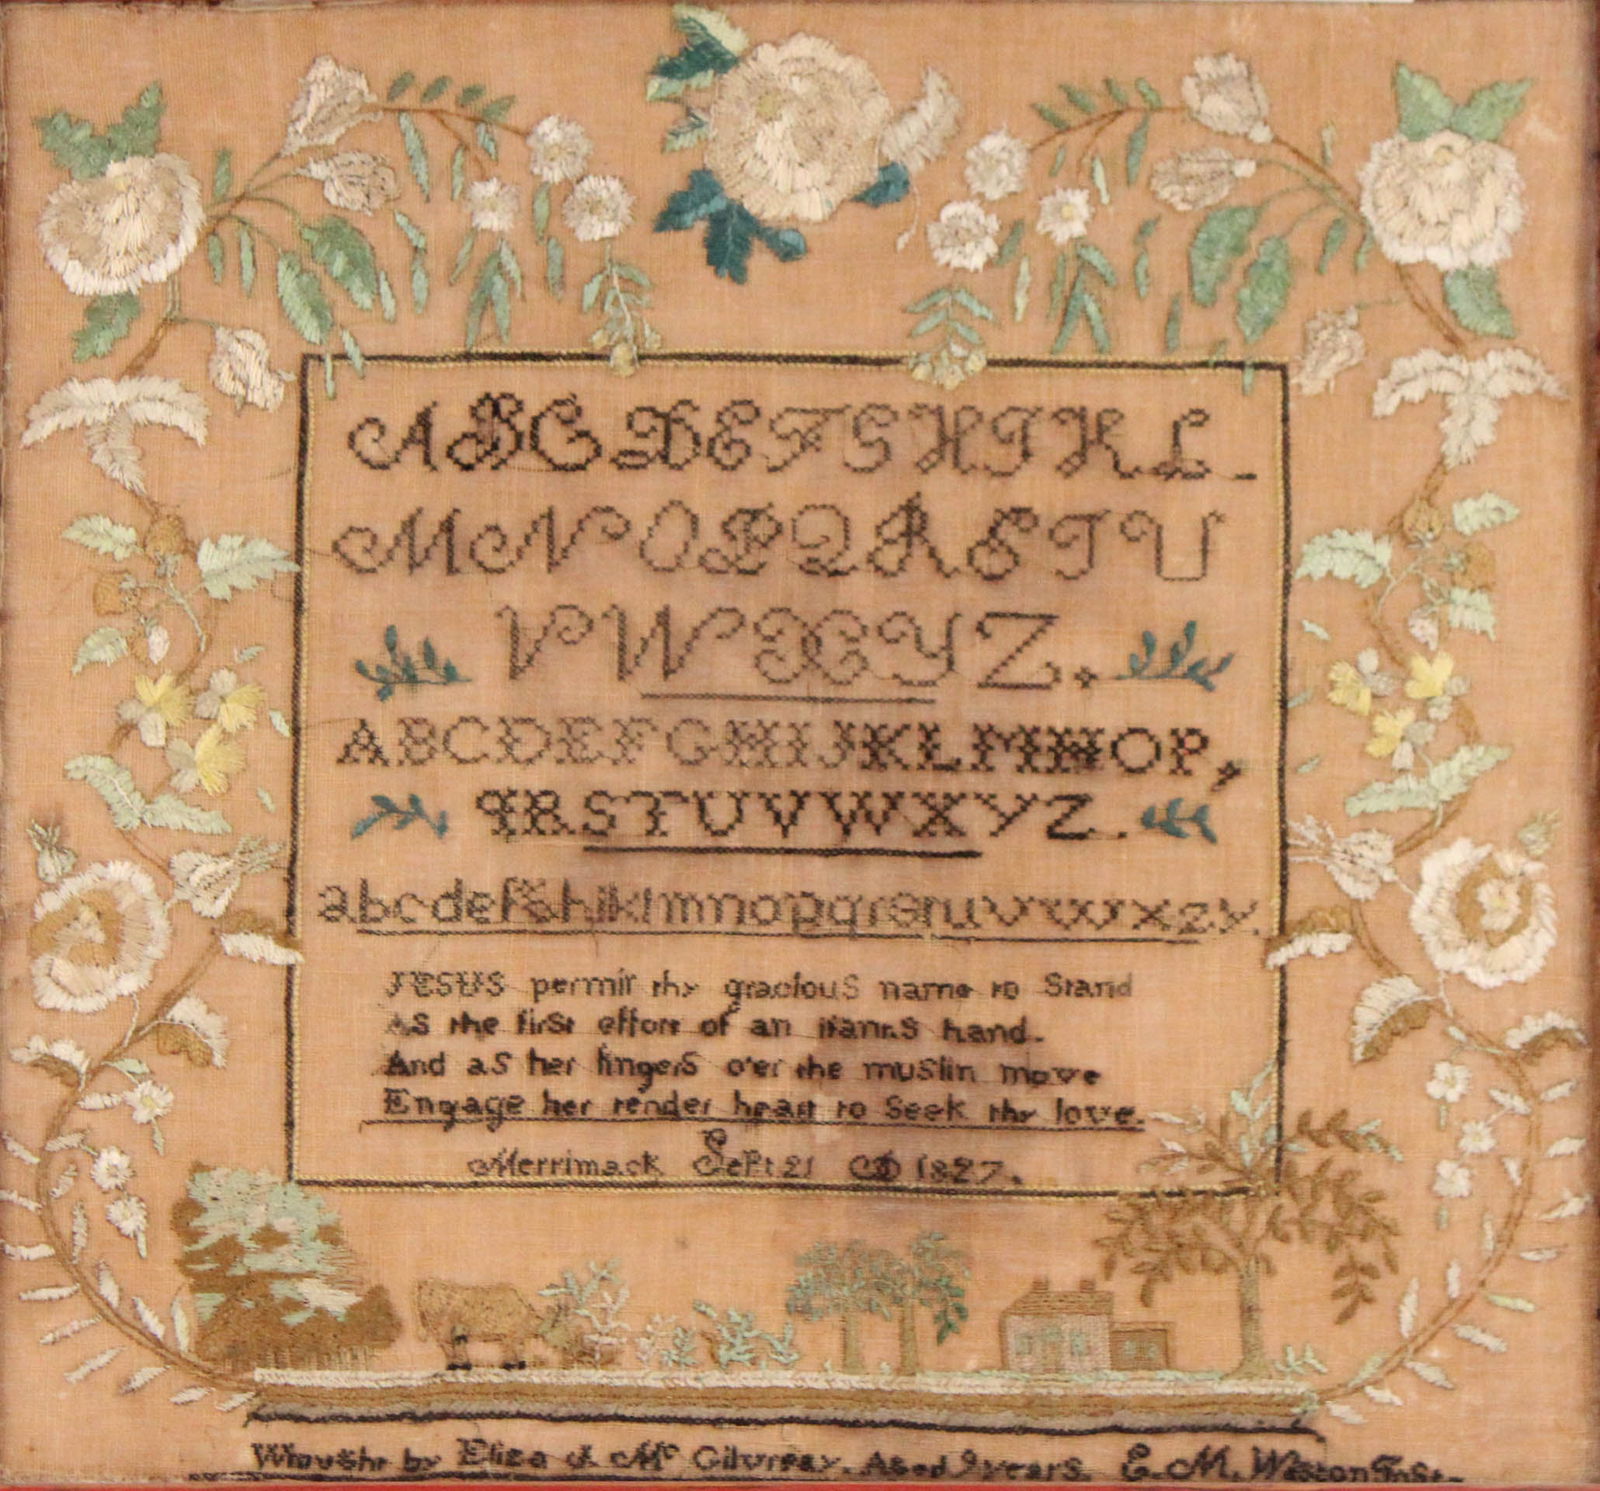 A B C D E F G H I K L
M N O P Q R S T U
V W X Y Z.
A B C D E F G H I J K L M N O P,
Q R S T U V W X Y Z.
a b c d e f g h i k l m n o p q r s t u v w x z y.
JESUS permit thy gracious name to Stand
As the first effort of an ifants hand.
And as her fingers o'er the muslin move
Engage her tender heart to Seek thy love.
Merrimack Sept 21 AD 1827.
Wrought by Eliza J. Mc Gilvreay. Aged 9 years. E. M. Weston Inst.